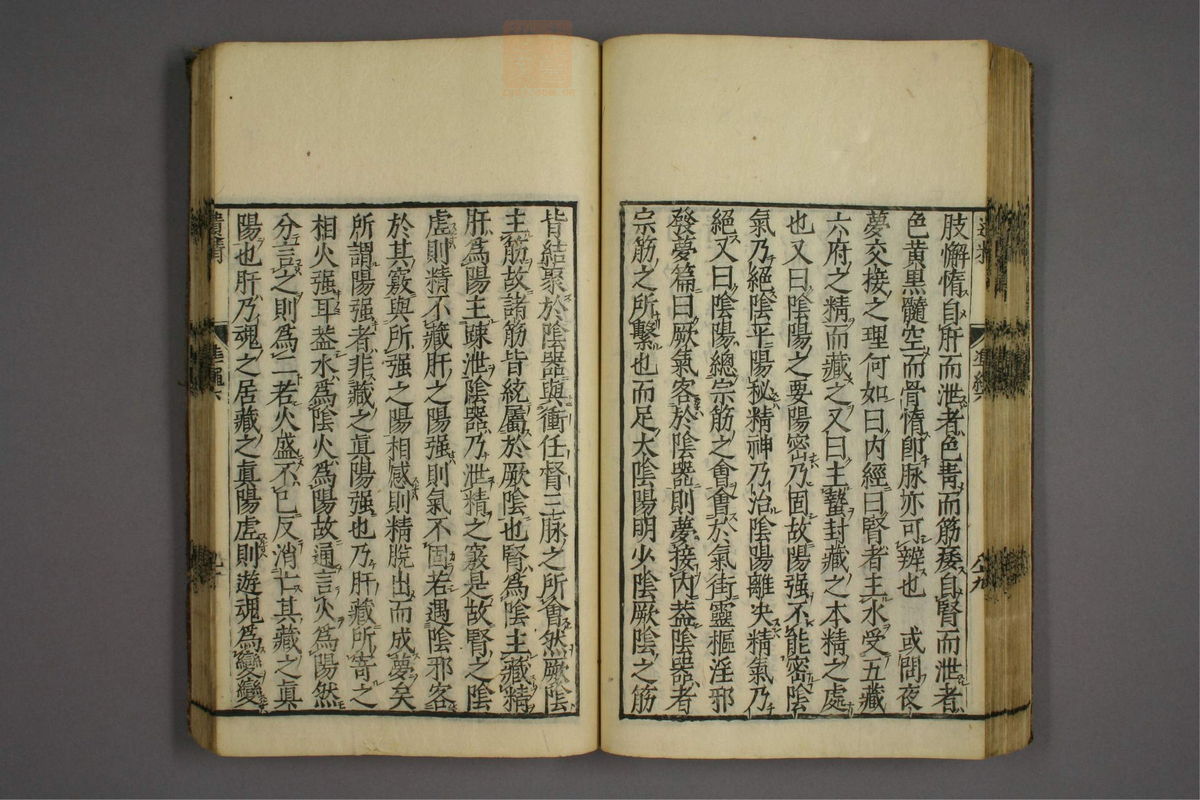 肢懈惰自肝而泄者色靑而筋痿自腎而泄者
色黃黑髓空而骨惰卽脉亦可辨也　或問夜
夢交接之理何如曰內經曰腎者主水受五藏
六府之精而藏之又曰主蟄封藏之本精之處
也又曰陰陽之要陽密乃固故陽强不能密陰
氣乃絕陰平陽秘精神乃治陰陽離决精氣乃
絕又曰陰陽總宗筋之會會於氣街靈樞淫邪
發夢篇曰厥氣客於陰器則夢接內蓋陰器者
宗筋之所繫也而足太陰陽明少陰厥陰之筋
皆結聚於陰器與衝任督三脉之所會然厥陰
主筋故諸筋皆統屬於厥陰也腎爲陰主藏精
肝爲陽主疎泄陰器乃泄精之竅是故腎之陰
虛則精不藏肝之陽强則氣不固若遇陰邪客
於其竅與所强之陽相感則精脫出而成夢矣
所謂陽强者非藏之眞陽强也乃肝藏所寄之
相火强耳蓋水爲陰火爲陽故通言火爲陽然
分言之則爲二若火盛不已反消亡其藏之眞
陽也肝乃魂之居藏之眞陽虛則遊魂爲變變
遺精
準繩六